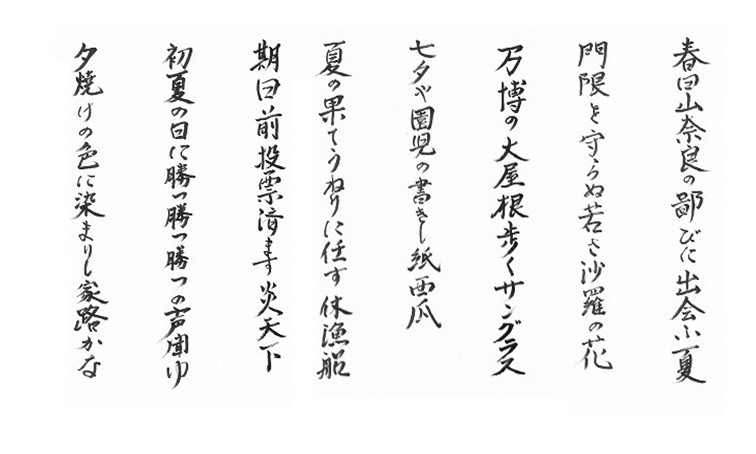 春日山奈良の鄙びに出会ふ夏
門限を守らぬ若さ沙羅の花
万博の大屋根歩くサングラス
七夕や園児の書きし紙西瓜
夏の果てうねりに任す休漁船
期日前投票済ます炎天下
初夏の日に勝つ勝つ勝つの声聞ゆ
夕焼けの色に染まりし家路かな